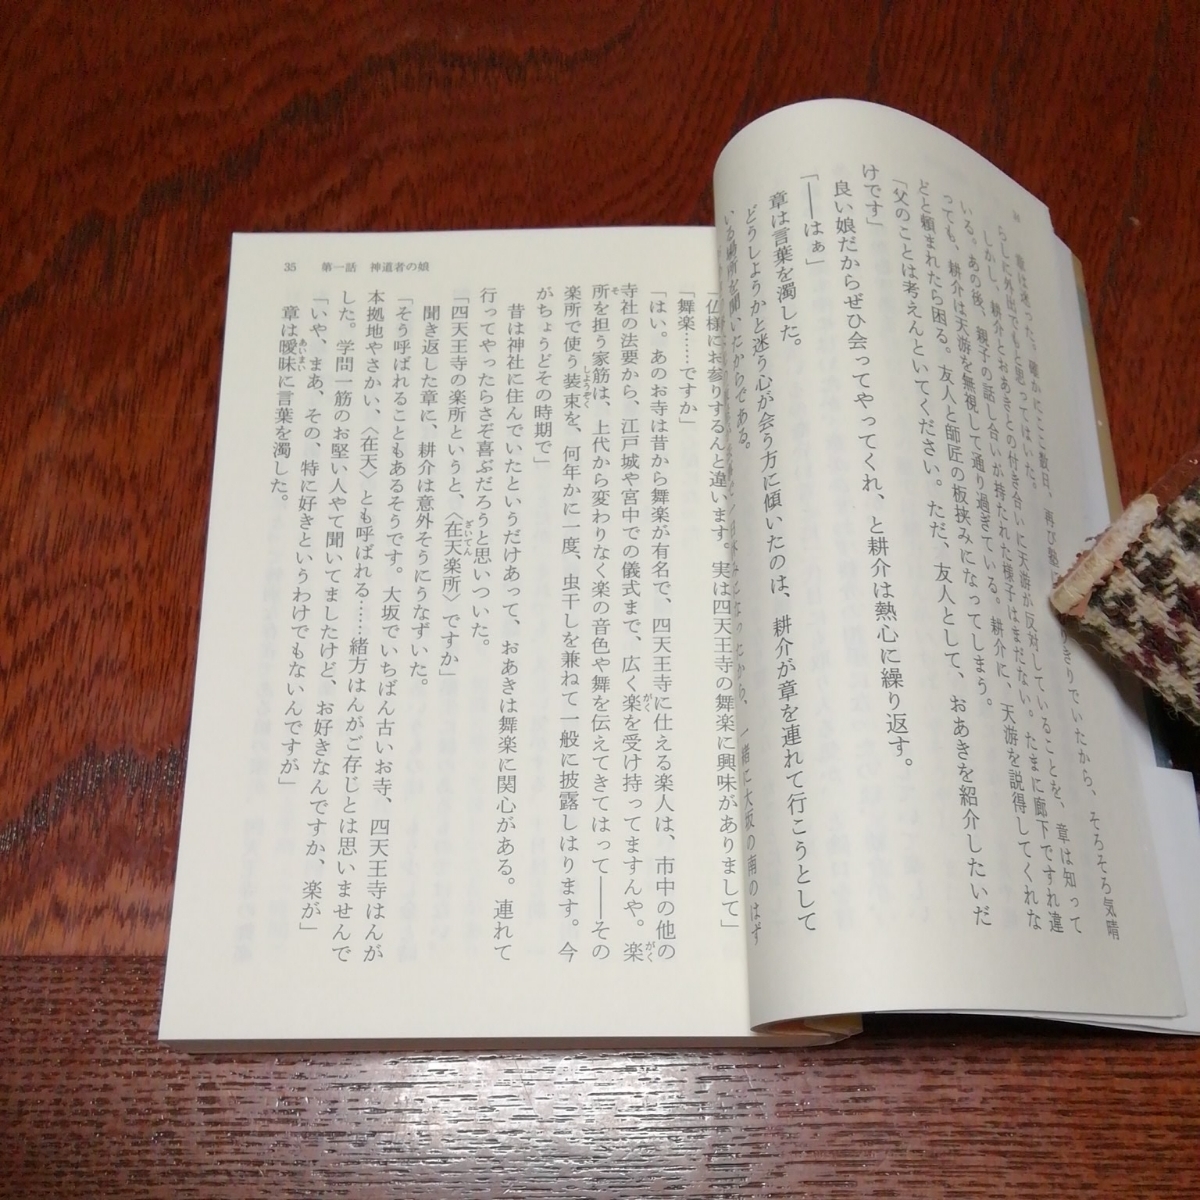 34
章は迷った。確かにここ数日、再び塾に
きりでいたから、そろそろ気晴
らしに外出でもと思ってはいた。
しかし、耕介とおあきとの付き合いに天游が反対していることを、章は知って
いる。あの後、親子の話し合いが持たれた様子はまだない。たまに廊下ですれ違
っても、耕介は天游を無視して通り過ぎている。耕介に、天游を説得してくれな
どと頼まれたら困る。友人と師匠の板挟みになってしまう。
「父のことは考えんといてください。ただ、友人として、おあきを紹介したいだ
けです」
良い娘だからぜひ会ってやってくれ、と耕介は熱心に繰り返す。
「――はぁ」
章は言葉を濁した。
どうしようかと迷う心が会う方に傾いたのは、耕介が章を連れて行こうとして
いる場所を聞いたからである。
一緒に大坂の南のはず
「仏様にお参りするんと違います。実は四天王寺の舞楽に興味がありまして」
「舞楽……ですか」
「はい。あのお寺は昔から舞楽が有名で、四天王寺に仕える楽人は、市中の他の
寺社の法要から、江戸城や宮中での儀式まで、広く楽を受け持ってますんや。楽
所を担う家筋は、上代から変わりなく楽の音色や舞を伝えてきてはって――その
楽所で使う装束を、何年かに一度、虫干しを兼ねて一般に披露しはります。今
がちょうどその時期で」
昔は神社に住んでいたというだけあって、おあきは舞楽に関心がある。連れて
行ってやったらさぞ喜ぶだろうと思いついた。
「四天王寺の楽所というと、〈在天楽所〉ですか」
聞き返した章に、耕介は意外そうにうなずいた。
「そう呼ばれることもあるそうです。大坂でいちばん古いお寺、四天王寺はんが
本拠地やさかい、〈在天〉とも呼ばれる……緒方はんがご存じとは思いませんで
した。学問一筋のお堅い人やて聞いてましたけど、お好きなんですか、楽が」
「いや、まあ、その、特に好きというわけでもないんですが」
章は曖昧に言葉を濁した。
35 第一話 神道者の娘